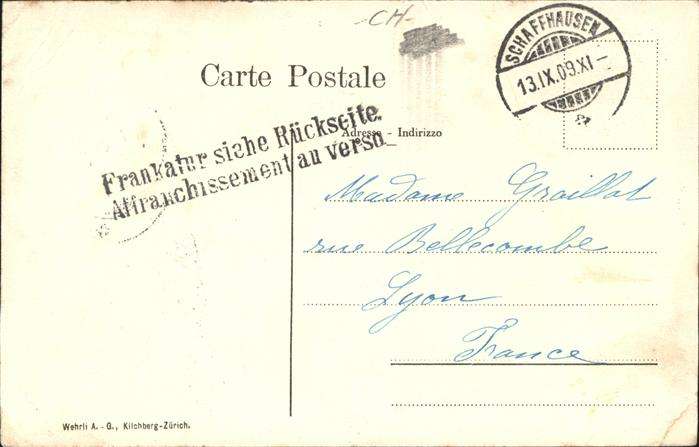 -CH-
SCHAFFHAUSEN
13.IX.09.XI-
Carte Postale
Frankatur siehe Rückseite.
Affranchissement au verso
Adresse - Indirizzo
Madame Graillat
rue Bellecombe
Lyon
France
Wehrli A.-G., Kilchberg-Zürich.